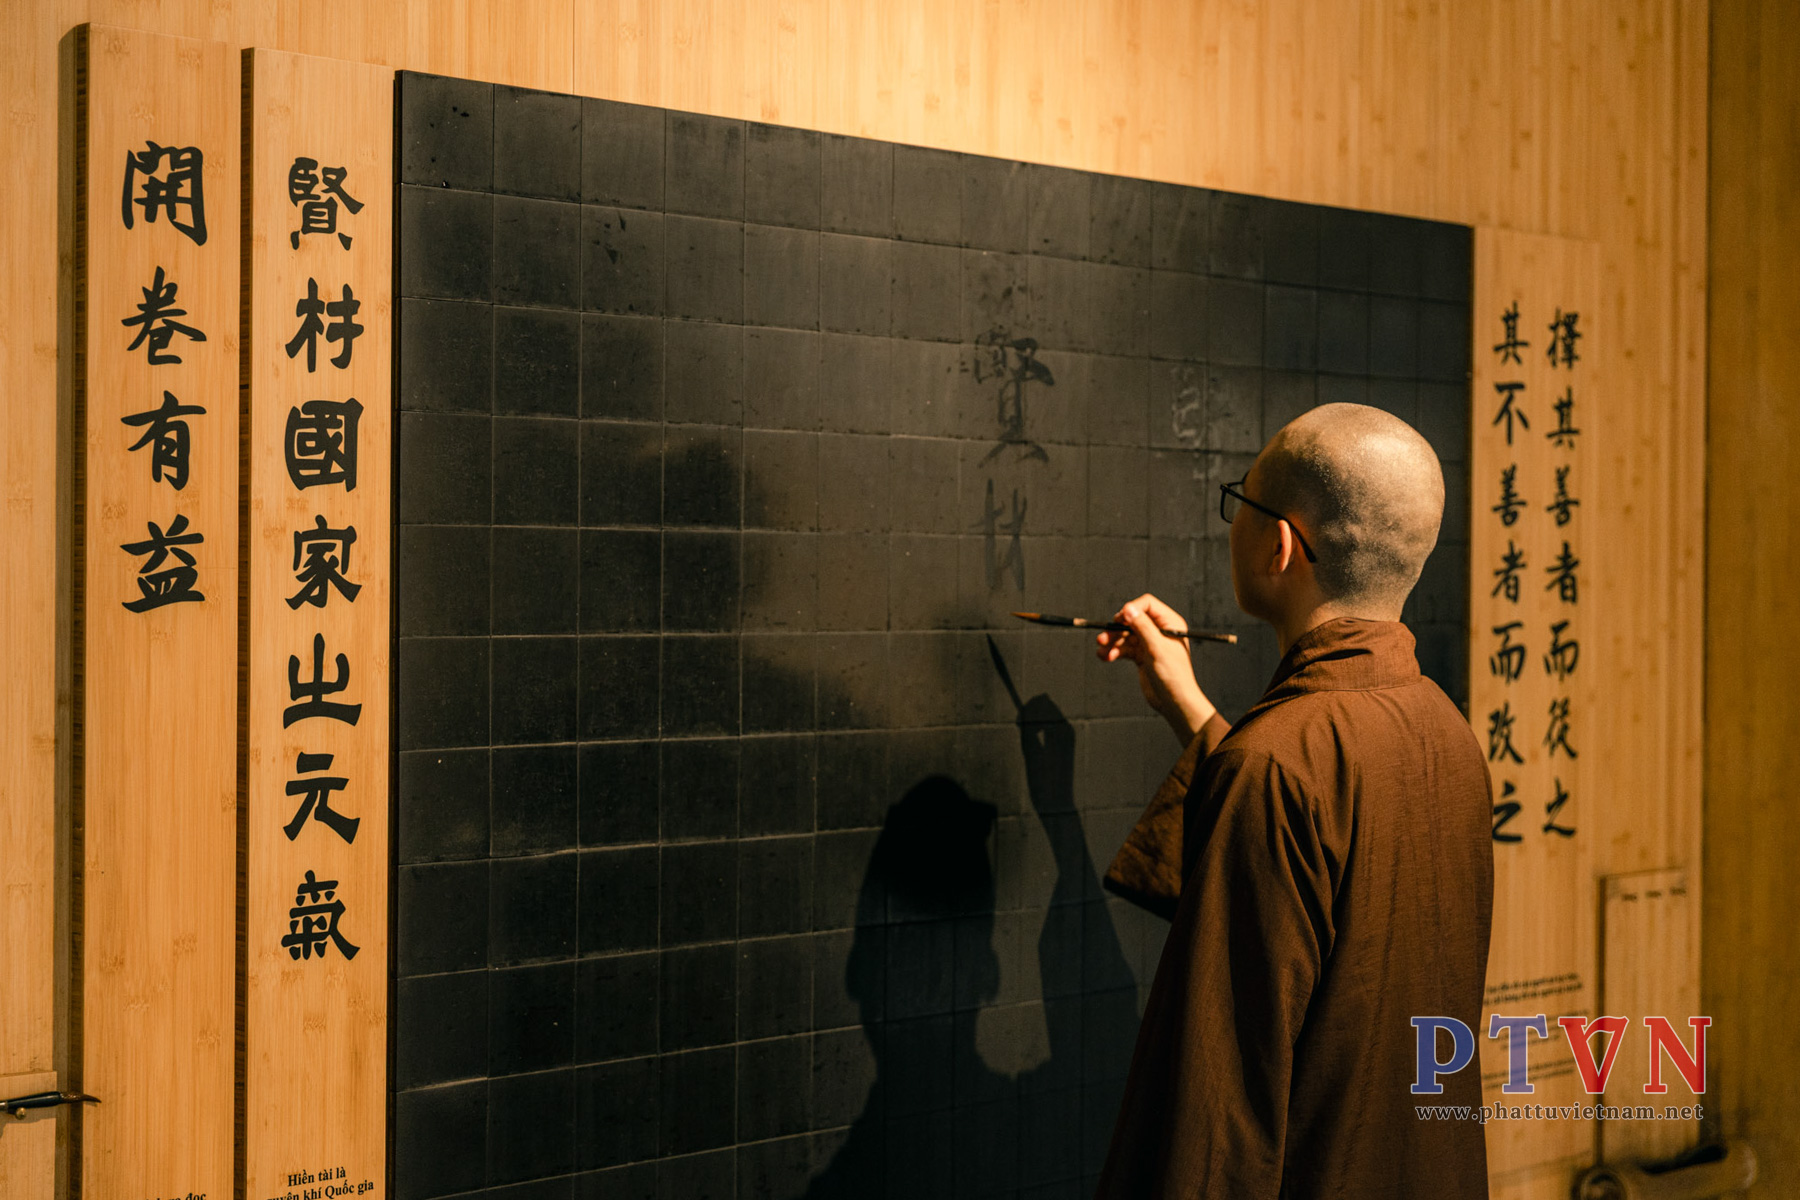 開卷有益
賢材國家㞢元氣
賢材
擇其善者而從之
其不善者而改之
Hiền tài là
nguyên khí Quốc gia
đọc
PTVN
www.phattuvietnam.net